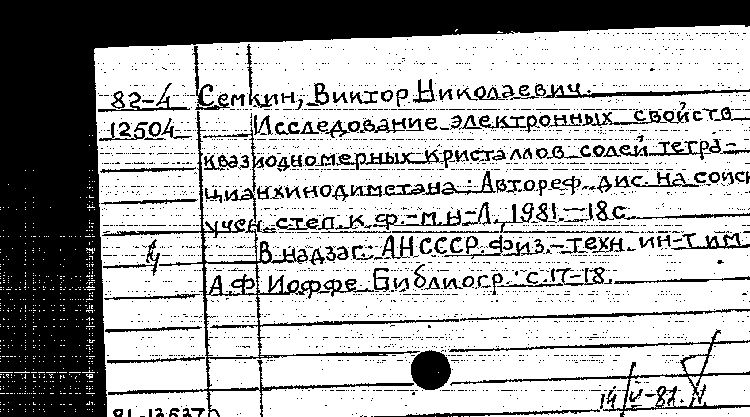 82-4 Семкин, Виктор Николаевич.
12504 Исследование электронных свойств
квазиодномерных кристаллов солей тетра-
цианхинодиметана: Автореф. дис. на соиск
учен. степ. к.ф.-м.н-Л., 1981.-18с.
В надзаг.: АН СССР. Физ.-техн. ин-т им
А.Ф. Иоффе. Библиогр.: с.17-18.
81-13537